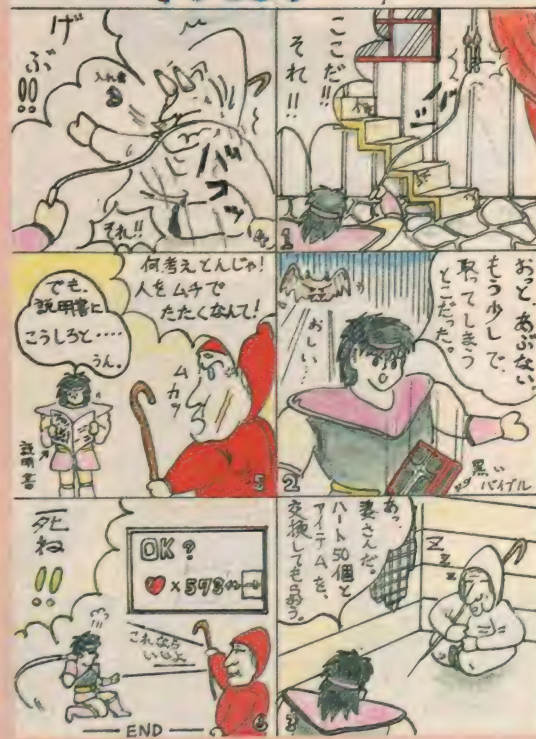 ここだ!!
それ!!
1
おっと、あぶない。
もう少しで、
取ってしまう
とこだった。
おしい…
黒い
バイブル
2
あっ、
婆さんだ。
ハート50個と
アイテムを、
交換してもらおう。
Z
Z
Z
3
げ
ぶ!!
入れ歯
バコッ
それ!!
何考えとんじゃ!
人をムチで
たたくなんて!
でも、
説明書に
こうしろと‥‥
うん。
ムカッ
説明書
5
OK?
♥×573ハート
これなら
いいよ
死ね!!
6
END